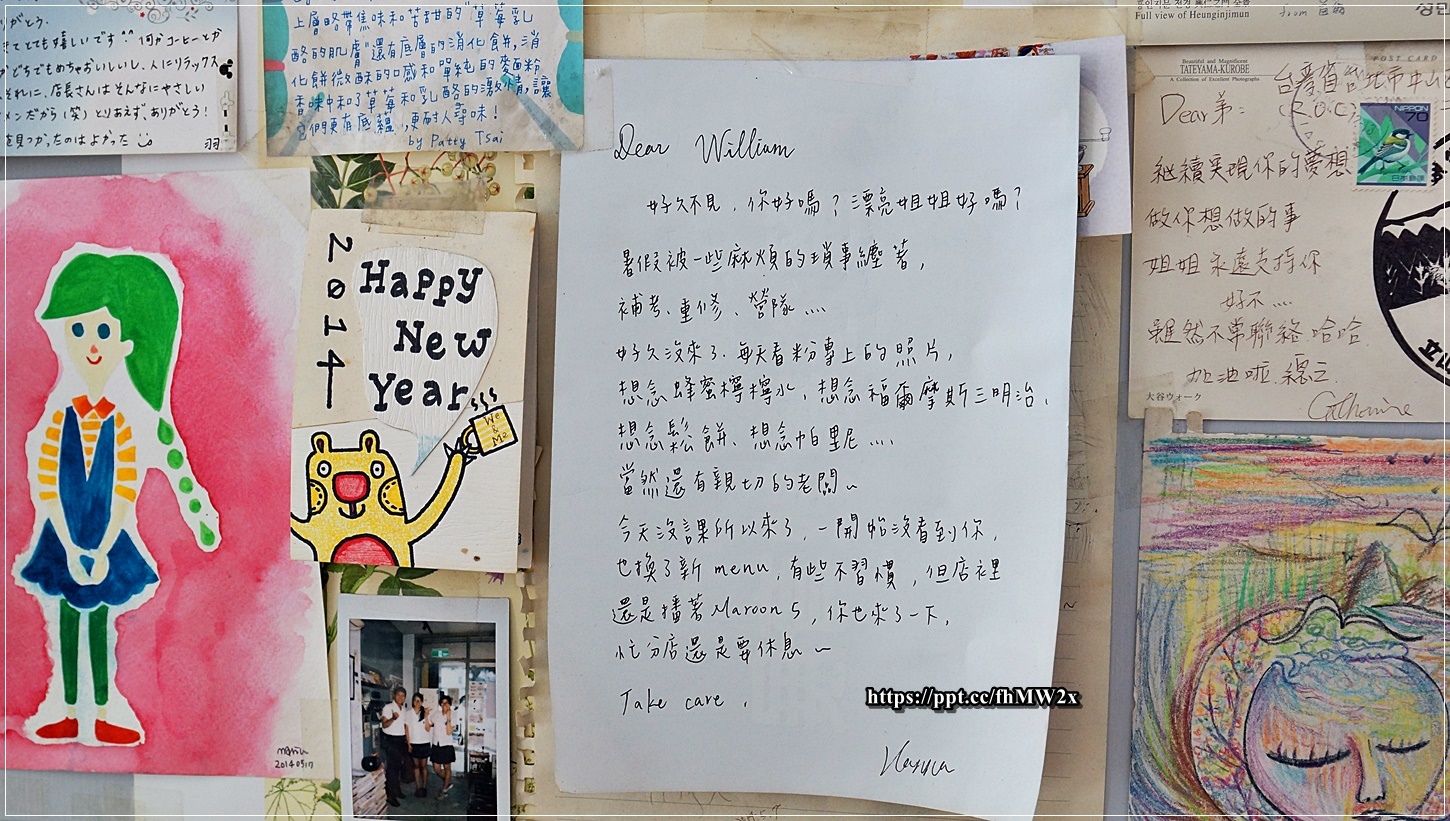 がとう。
きてとても嬉しいです^^ 何かコーヒーとか
どちでもめちゃおいしいし、人にリラックス
それに、店長さんはそんなにやさしい
メンだから(笑) とりあえず、ありがとう!
を見つかったのはよかった
羽
上層略帶焦味和苦甜的"草莓乳
酪的肌膚"還有底層的消化餅,消
化餅微酥的口感和單純的麥面粉
香味中和了草莓和乳酪的激情,讓
它們更有底蘊,更耐人尋味!
by Patty Tsai
2014
Happy
New
Year
We & Me
20140517
Dear William
好久不見,你好嗎?漂亮姐姐好嗎?
暑假被一些麻煩的瑣事纏著,
補考、重修、營隊....
好久沒來了.每天看粉專上的照片,
想念蜂蜜檸檬水,想念福爾摩斯三明治,
想念鬆餅、想念帕里尼....
當然還有親切的老闆~
今天沒課所以來了,一開始沒看到你,
也換了新menu,有些不習慣,但店裡
還是播著Maroon 5,你也來了一下,
忙分店還是要休息~
Take care,
https://ppt.cc/fhMW2x
Full view of Heunginjimun
from 首爾
Beautiful and Magnificent
TATEYAMA-KUROBE
A Collection of Excellent Photographs
POST CARD
台灣省台北市中山
Dear 弟:
(R.O.C)
NIPPON
70
日本郵便
繼續實現你的夢想
做你想做的事
姐姐永遠支持你
好不....
雖然不常聯絡 哈哈
加油啦 總之.
立山
大谷ウォーク
Catherine